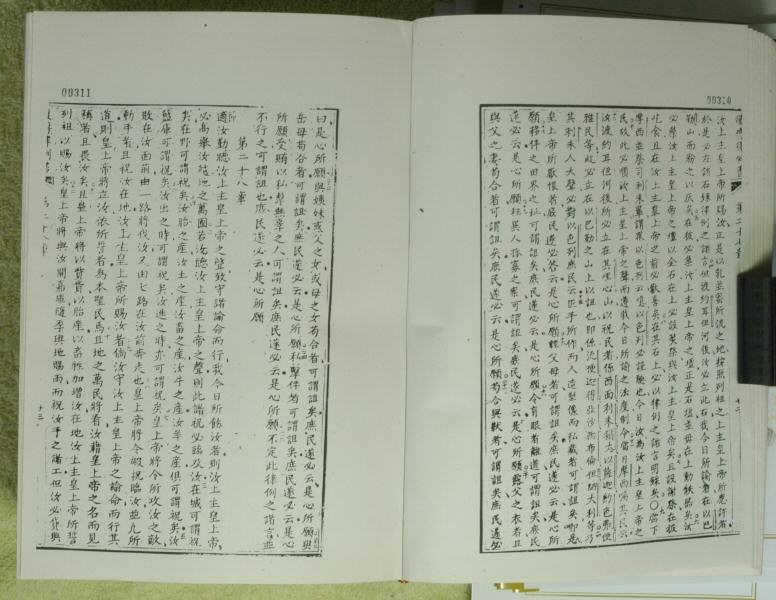 00310
汝上主皇上帝所賜汝正是以乳並蜜所流之地按照列祖之上主皇上帝所應許者
於是必在斯石錄律例之諸言但汝過約耳但河後汝必立此石我今日所諭者在以巴
頭山而粉之以灰矣在彼必築汝上主皇上帝之壇正是石壇並毋在上動鉄器矣汝
必築汝上主皇上帝之壇以全石在上必設焚祭與汝上主皇上帝矣且設謝祭在彼
吃食且在汝上主皇上帝之前必歡喜矣在其石上必以律例之諸言明錄矣〇當下
摩西並祭司利未輩謂眾以色列云
民故此必順汝上主皇上帝之聲而遵我今日所諭之法度制令當日摩西囑其民云
汝渡約耳但河後所必立在其
山以祝民者係西面利未猶大以薩迦約色弗便
雅民等故必立在以巴勒之山上以詛也
其利未人大聲必對以色列庶民云匠手所作而人造塑像而私藏者可謂詛矣即是
皇上帝所厭恨者庶民遂必答云是心所願輕父母者可謂詛矣庶民遂必云是心所
願移伴之田界之址可謂詛矣庶民遂必云是心所願令盲眼者離道可謂詛矣庶民
遂必云是心所願枉異人孤寡之案可謂詛矣庶民遂必云是心所願露父之衣者且
與父之妻苟合者可謂詛矣庶民遂必云是心所願苟合與獸者可謂詛矣庶民遂必
00311
曰是心所願與姨妹或父之女或母之女苟合者可謂詛矣庶民遂必云是心所願與
岳母苟合者可謂詛矣庶民遂必云是心所願私擊伴者可謂詛矣庶民遂必云是心
所願受賄以私弒無辜之人可謂詛矣庶民遂必云是心所願不定此律例之諸言並
不行之可謂詛也庶民遂必云是心所願
第二十八章
適汝勤聽汝上主皇上帝之聲致守諸諭命而行我今日所飭汝者則汝上主皇上帝
必高舉汝超地之萬國若汝聽汝上主皇上帝之聲則此諸祝必臨及汝在城可謂祝
矣在郊可謂祝矣汝胎之產汝土之產汝畜之產汝牛之產汝羊之產俱可謂祝矣汝
籃庫可謂祝矣汝出之時可謂祝矣汝進之時亦可謂祝矣皇上帝將令所攻汝之敵
敗在汝面前由一路將伐汝又由七路在汝前奔走也皇上帝將令嘏祝臨汝並凡所
動手者且祝汝在地汝上主皇上帝所賜汝者倘汝守汝上主皇上帝之諭命而行其
道則皇上帝將立汝依所誓者為本聖民焉且地之萬民將看汝籍皇上帝之名而見
稱者且畏汝矣且皇上帝將以貨貲以胎產以畜牲加增汝在地汝上主皇上帝所誓
列祖以賜汝矣皇上帝將與汝開嘉庫隨季與地賜雨而祝汝手之諸工但汝必貸與